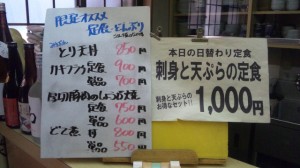 限定オススメ
定食・どんぶり
とり天丼 850円
カキフライ定食 900円
単品 700円
定食 950円
単品 600円
どて煮丼 800円
単品 550円
本日の日替わり定食
刺身と天ぷらの定食
刺身と天ぷらの
お得なセット!!
1,000円